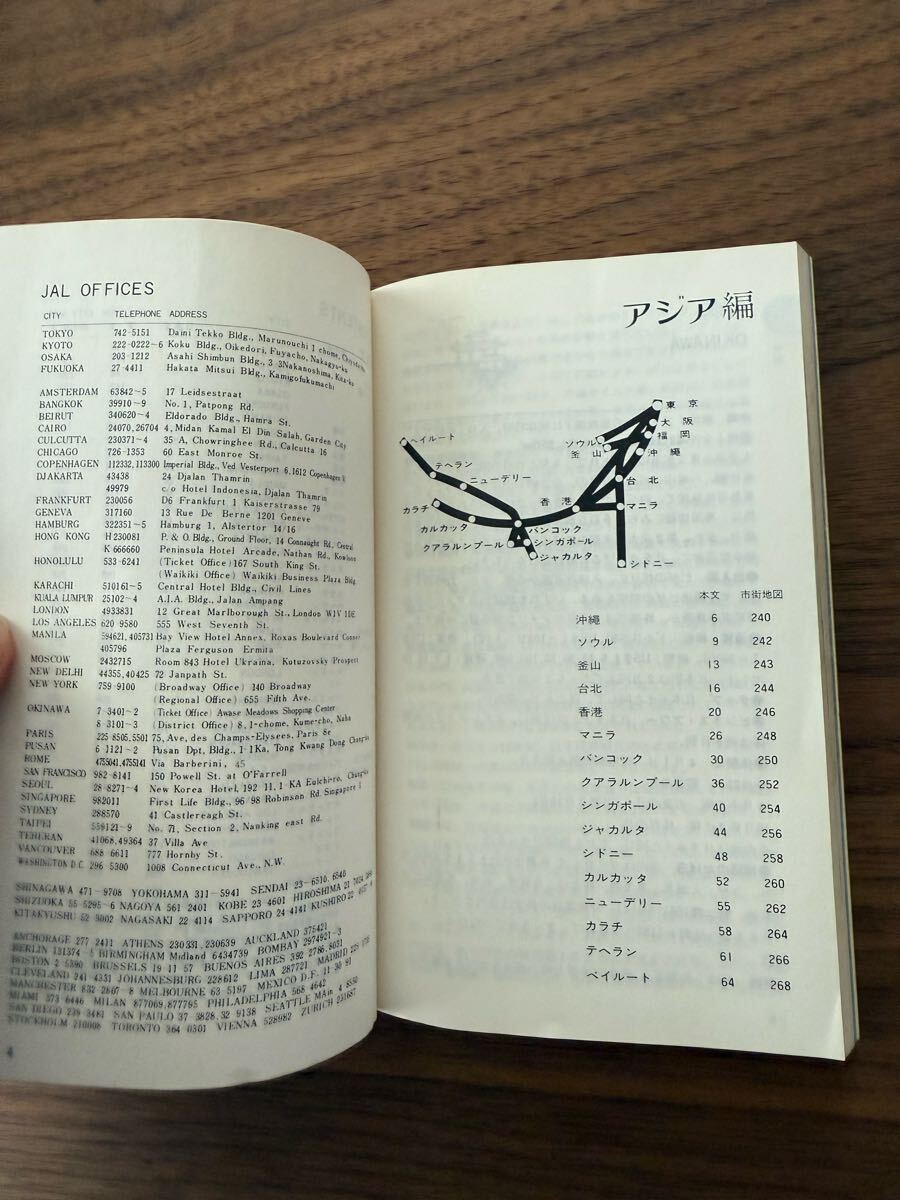 JAL OFFICES
CITY TELEPHONE ADDRESS
TOKYO 742-5151 Daini Tekko Bldg., Marunouchi 1 chome,
KYOTO 222-0222~6 Koku Bldg., Oikedori, Fuyacho, Nakagyu-ku
OSAKA 203-1212 Asahi Shimbun Bldg., 3-3Nakanoshima, Kita-ku
FUKUOKA 27-4411 Hakata Mitsui Bldg., Kamigofukumachi
AMSTERDAM 63842~5 17 Leidsestraat
BANGKOK 39910~9 No. 1, Patpong Rd.
BEIRUT 340620~4 Eldorado Bldg., Hamra St.
CAIRO 24070, 26704 4, Midan Kamal El Din Salah, Garden City
CULCUTTA 230371~4 35 A, Chowringhee Rd., Calcutta 16
CHICAGO 726-1353 60 East Monroe St.
COPENHAGEN 112332, 113300 Imperial Bldg., Ved Vesterport 6, 1612 Copenhagen V
DJAKARTA 43438 24 Djalan Thamrin
49979 c/o Hotel Indonesia, Djalan Thamrin
FRANKFURT 230056 D6 Frankfurt 1 Kaiserstrasse 79
GENEVA 317160 13 Rue De Berne 1201 Geneve
HAMBURG 322351~5 Hamburg 1, Alstertor 14/16
HONG KONG H 230081 P. & O. Bldg., Ground Floor, 14 Connaught Rd., Central
K 666660 Peninsula Hotel Arcade, Nathan Rd., Kowloon
HONOLULU 533-6241 (Ticket Office) 167 South King St.
(Waikiki Office) Waikiki Business Plaza Bldg.
KARACHI 510161~5 Central Hotel Bldg., Civil Lines
KUALA LUMPUR 25102~4 A.I.A. Bldg., Jalan Ampang
LONDON 4933831 12 Great Marlborough St., London W1V 1DE
LOS ANGELES 620 9580 555 West Seventh St.
MANILA 594621, 405731 Bay View Hotel Annex, Roxas Boulevard Corner
405796 Plaza Ferguson Ermita
MOSCOW 2432715 Room 843 Hotel Ukraina, Kutuzovsky Prospect
NEW DELHI 44355, 40425 72 Janpath St.
NEW YORK 759-9100 (Broadway Office) 140 Broadway
(Regional Office) 655 Fifth Ave.
OKINAWA 7 3401~2 (Ticket Office) Awase Meadows Shopping Center
8 3101~3 (District Office) 8, 1-chome, Kume-cho, Naha
PARIS 225 8505, 5501 75, Ave, des Champs-Elysees, Paris 8e
PUSAN 6 1121~2 Pusan Dpt, Bldg., 1 1Ka, Tong Kwang Dong
ROME 4755041, 4755141 Via Barberini, 45
SAN FRANCISCO 982-8141 150 Powell St. at O'Farrell
SEOUL 28-8271~4 New Korea Hotel, 192 11, 1 KA Eulchi-ro,
SINGAPORE 982011 First Life Bldg., 96/98 Robinson Rd. Singapore 1
SYDNEY 288570 41 Castlereagh St.
TAIPEI 559121~9 No. 71, Section 2, Nanking east Rd.
TEHERAN 41068, 49364 37 Villa Ave
VANCOUVER 688 6611 777 Hornby St.
WASHINGTON D.C. 296 5300 1008 Connecticut Ave., N.W.
SHINAGAWA 471-9708 YOKOHAMA 311-5941 SENDAI 23-6510, 6540
SHIZUOKA 55 5295~6 NAGOYA 561 2401 KOBE 23 4601 HIROSHIMA 21 7024
KITAKYUSHU 52 3002 NAGASAKI 22 4114 SAPPORO 24 4141 KUSHIRO 22
ANCHORAGE 277 2411 ATHENS 230331, 230639 AUCKLAND 375421
BERLIN 131374~5 BIRMINGHAM Midland 6434739 BOMBAY 2974921~3
BOSTON 2 5390 BRUSSELS 19 11 57 BUENOS AIRES 392 2786, 8031
CLEVELAND 241 4331 JOHANNESBURG 228612 LIMA 287721 MADRID
MANCHESTER 832 2807~8 MELBOURNE 63 5197 MEXICO D.F. 11 30 91
MIAMI 373 6446 MILAN 877069, 877795 PHILADELPHIA 568 4642
SAN DIEGO 239 3481 SAN PAULO 37 3828, 32 9138 SEATTLE MAin 4
STOCKHOLM 210008 TORONTO 364 0301 VIENNA 528982 ZURICH
4
アジア編
東京
大阪
福岡
沖縄
ソウル
釜山
台北
マニラ
香港
シドニー
ベイルート
テヘラン
ニューデリー
カラチ
カルカッタ
バンコック
クアラルンプール
シンガポール
ジャカルタ
本文 市街地図
沖縄 6 240
ソウル 9 242
釜山 13 243
台北 16 244
香港 20 246
マニラ 26 248
バンコック 30 250
クアラルンプール 36 252
シンガポール 40 254
ジャカルタ 44 256
シドニー 48 258
カルカッタ 52 260
ニューデリー 55 262
カラチ 58 264
テヘラン 61 266
ベイルート 64 268